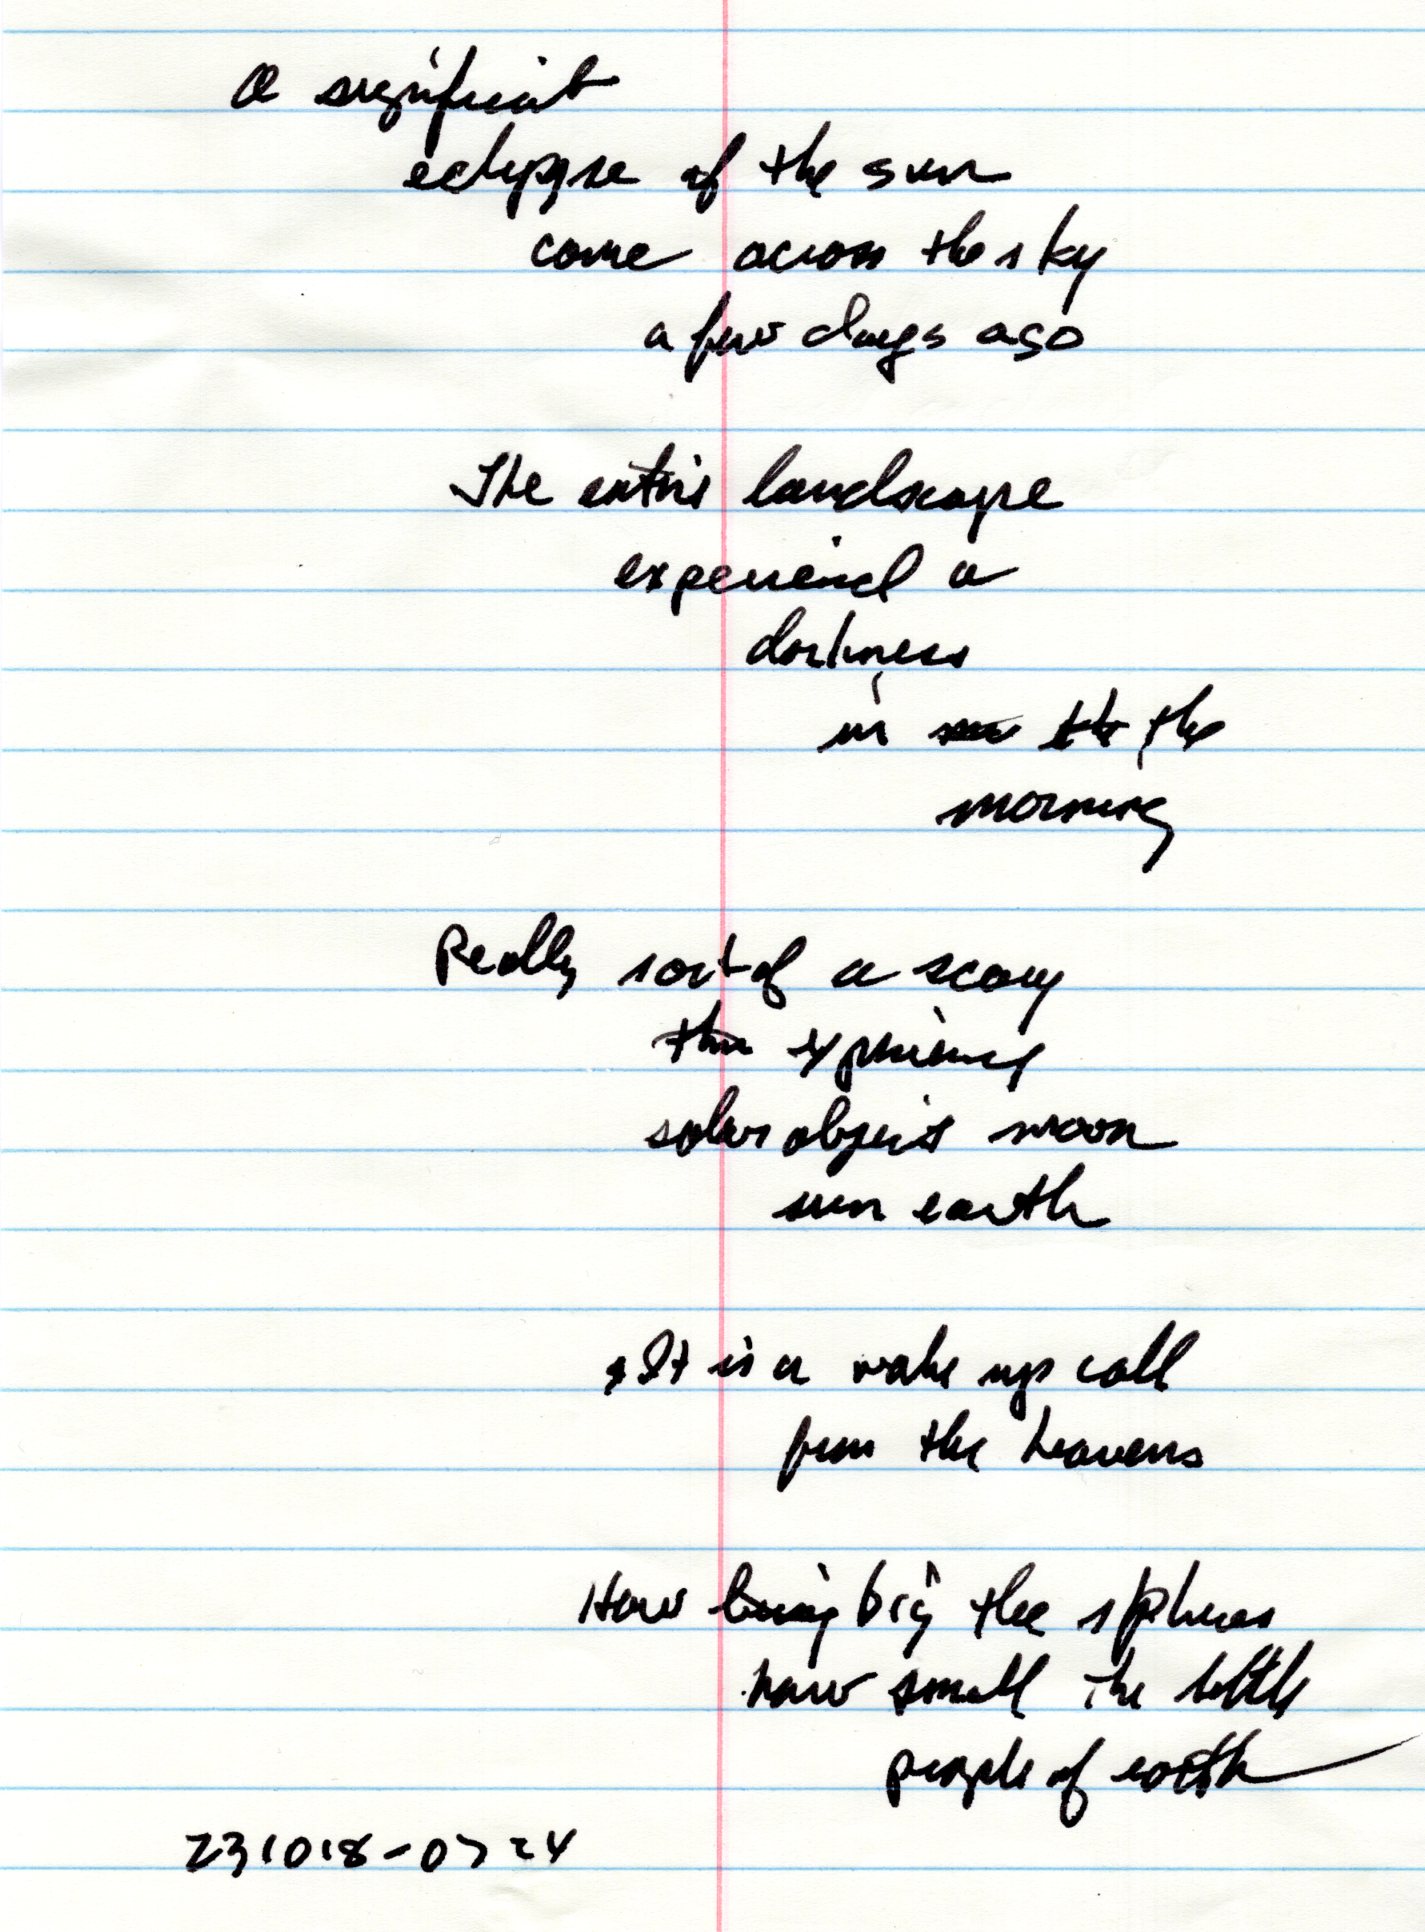 A significant
eclipse of the sun
come across the sky
a few days ago
The entire landscape
experienced a
darkness
in the
morning
Really sort of a scary
experience
solar object moon
sun earth
It is a wake up call
from the heavens
How big the spheres
how small the little
people of earth
231018-0724